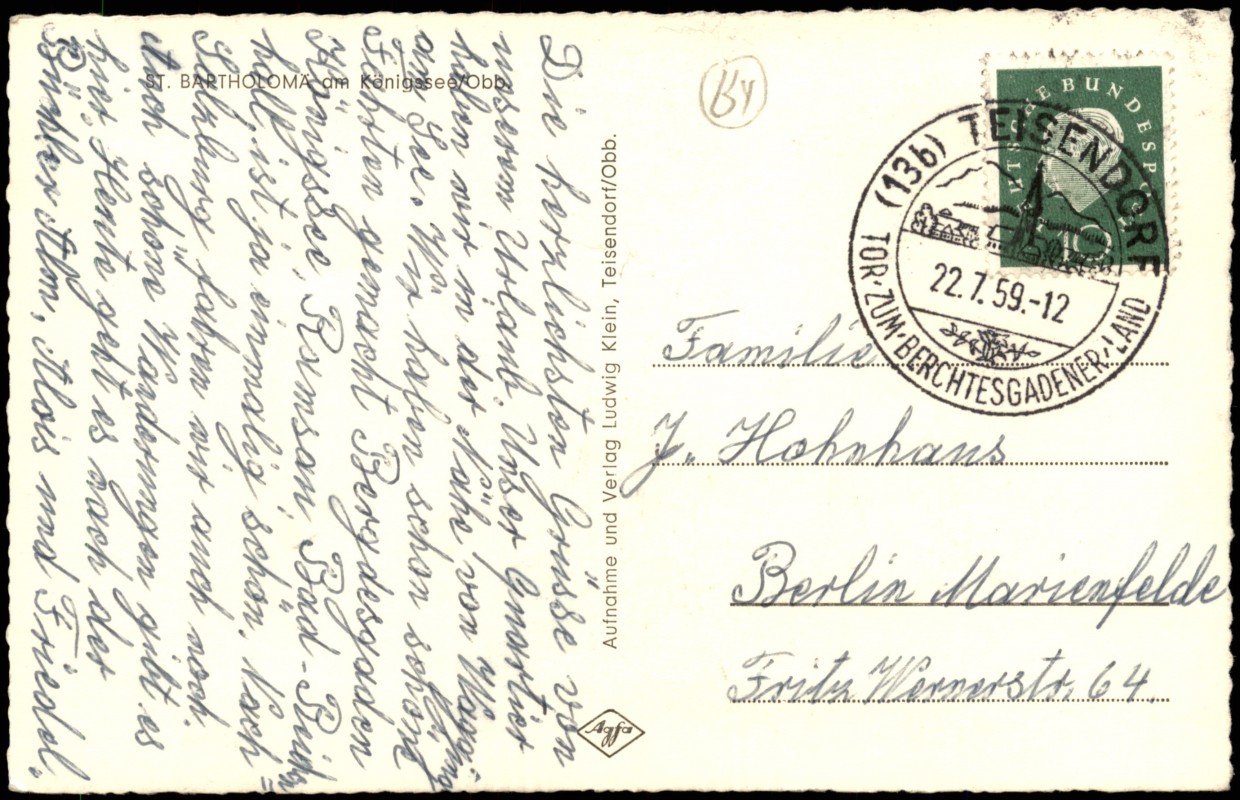 ST. BARTHOLOMÄ am Königssee/Obb.
Die herzlichsten Grüsse von
unserem Urlaub. Unser Quartier
haben wir in der Nähe von Waging
am See. Wir haben schon schöne
Fahrten gemacht Bergdesgaden
Königssee, Ramsau, Bad-Reichen
hall, ist ja einmalig schön. Nach
Salzburg fahren wir auch noch.
Auch schöne Wanderungen gibt es
hier. Heute geht es nach der
Alm, Alois und Friedel.
Aufnahme und Verlag Ludwig Klein, Teisendorf/Obb.
Agfa
BY
DEUTSCHE BUNDESPOST
10
(13b) TEISENDORF
22.7.59.-12
TOR·ZUM·BERCHTESGADENER·LAND
Familie
J. Hohnhaus
Berlin Marienfelde
Fritz Wernerstr. 64.